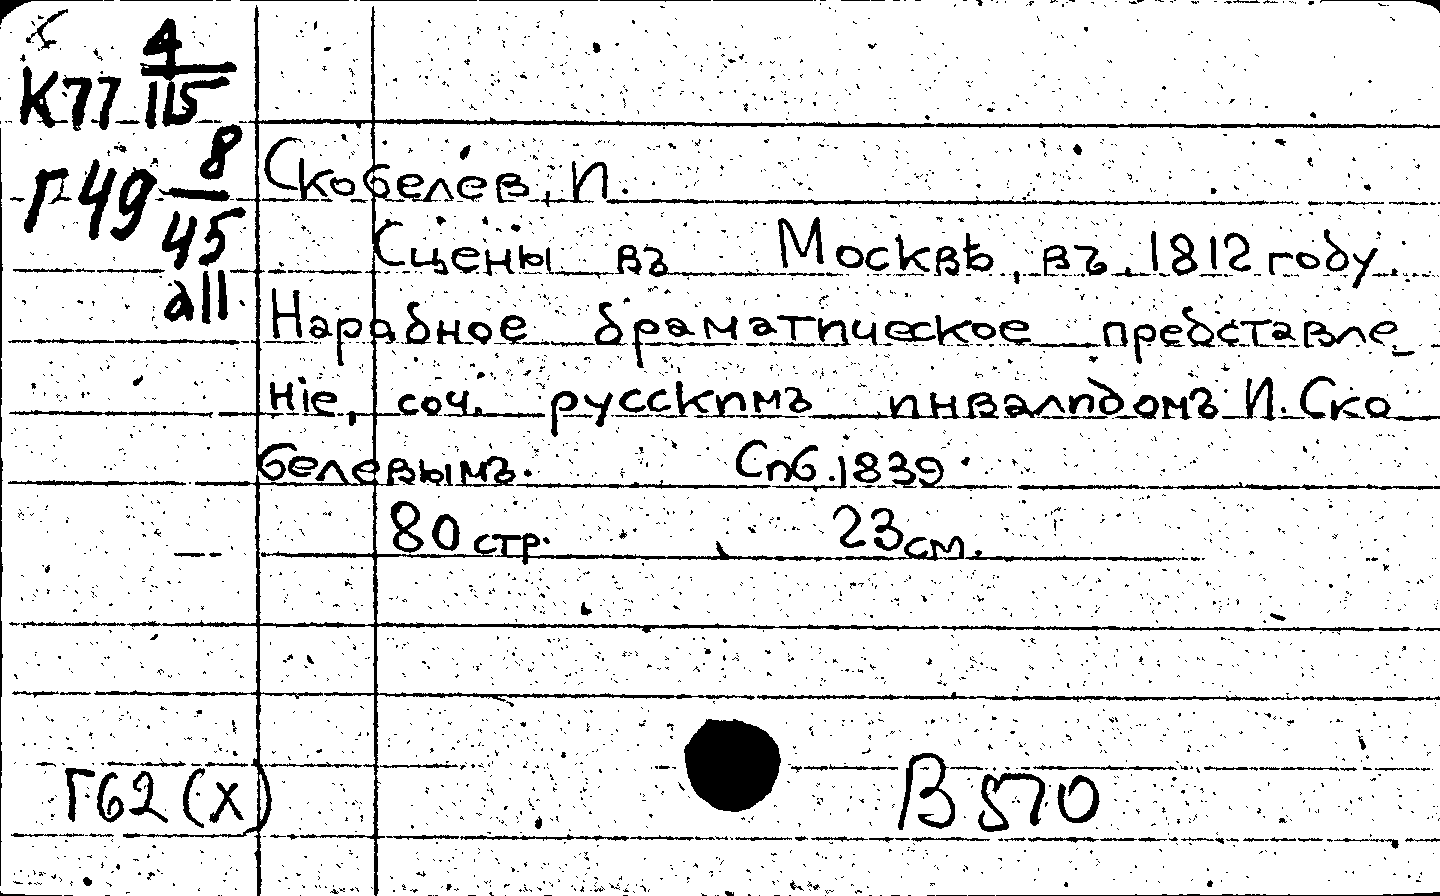 К77 4/115
Г49 8/45
all
Скобелев, И.
Сцены въ Москвѣ, въ 1812 году.
Народное драматическое представле_
ніе, соч. русскимъ инвалидомъ И. Ско
белевымъ. Спб. 1839.
80 стр. 23 см.
Г62 (х) В 570